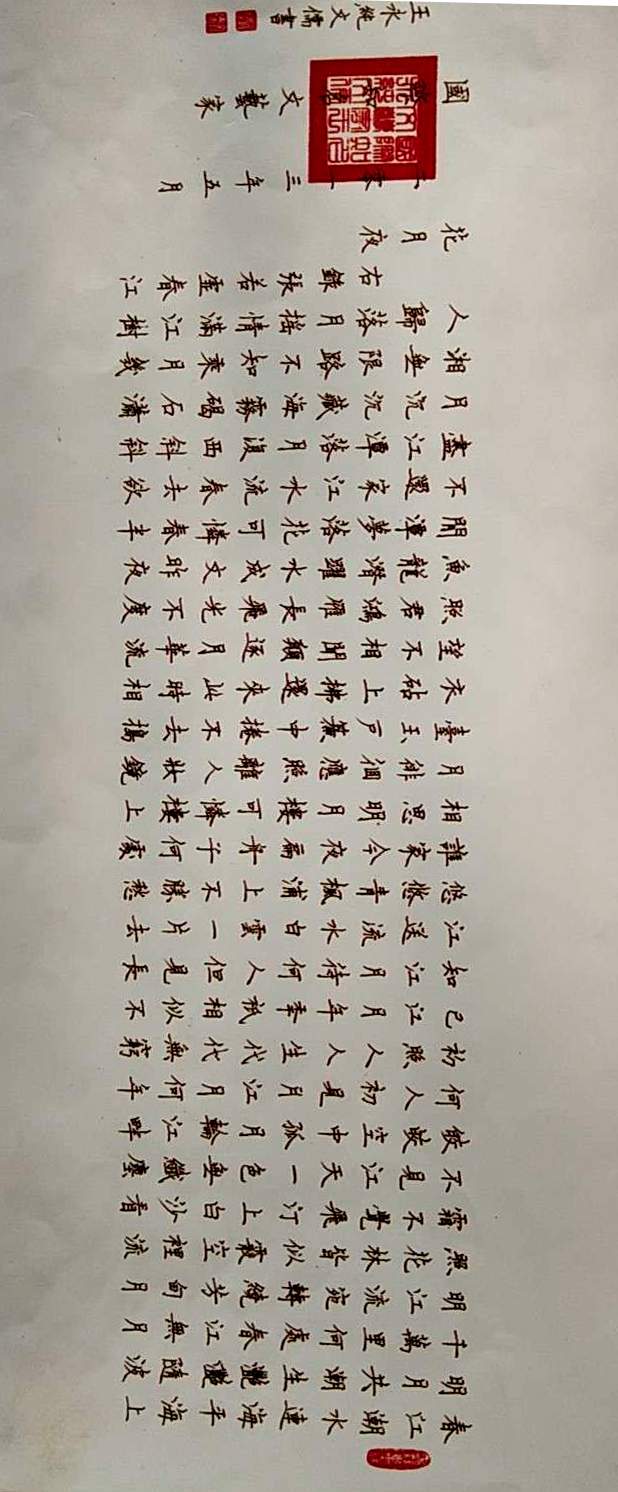 春江潮水連海平海上
明月共潮生灩灩隨波
千萬里何處春江無月
明江流宛轉繞芳甸月
照花林皆似霰空裡流
霜不覺飛汀上白沙看
不見江天一色無纖塵
皎皎空中孤月輪江畔
何人初見月江月何年
初照人人生代代無窮
已江月年秊祇相似不
知江月待何人但見長
江送流水白雲一片去
悠悠青楓浦上不勝愁
誰家今夜扁舟子何處
相思明月樓可憐樓上
月徘徊應照離人妝鏡
臺玉戶簾中捲不去搗
衣砧上拂還來此時相
望不相聞願逐月華流
照君鴻雁長飛光不度
魚龍潛躍水成文昨夜
閒潭夢落花可憐春半
不還家江水流春去欲
盡江潭落月復西斜斜
月沉沉藏海霧碣石瀟
湘無限路不知乘月幾
人歸落月搖情滿江樹
右錄張若虛春江
花月夜
二零二三年五月
國際文藝家
王永純文儒書